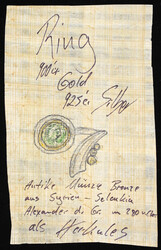 Ring
900er
Gold
925er Silber
Antike Münze Bronze
aus Syrien - Seleukia
Alexander d. Gr. um 280 v. Chr.
als Herkules